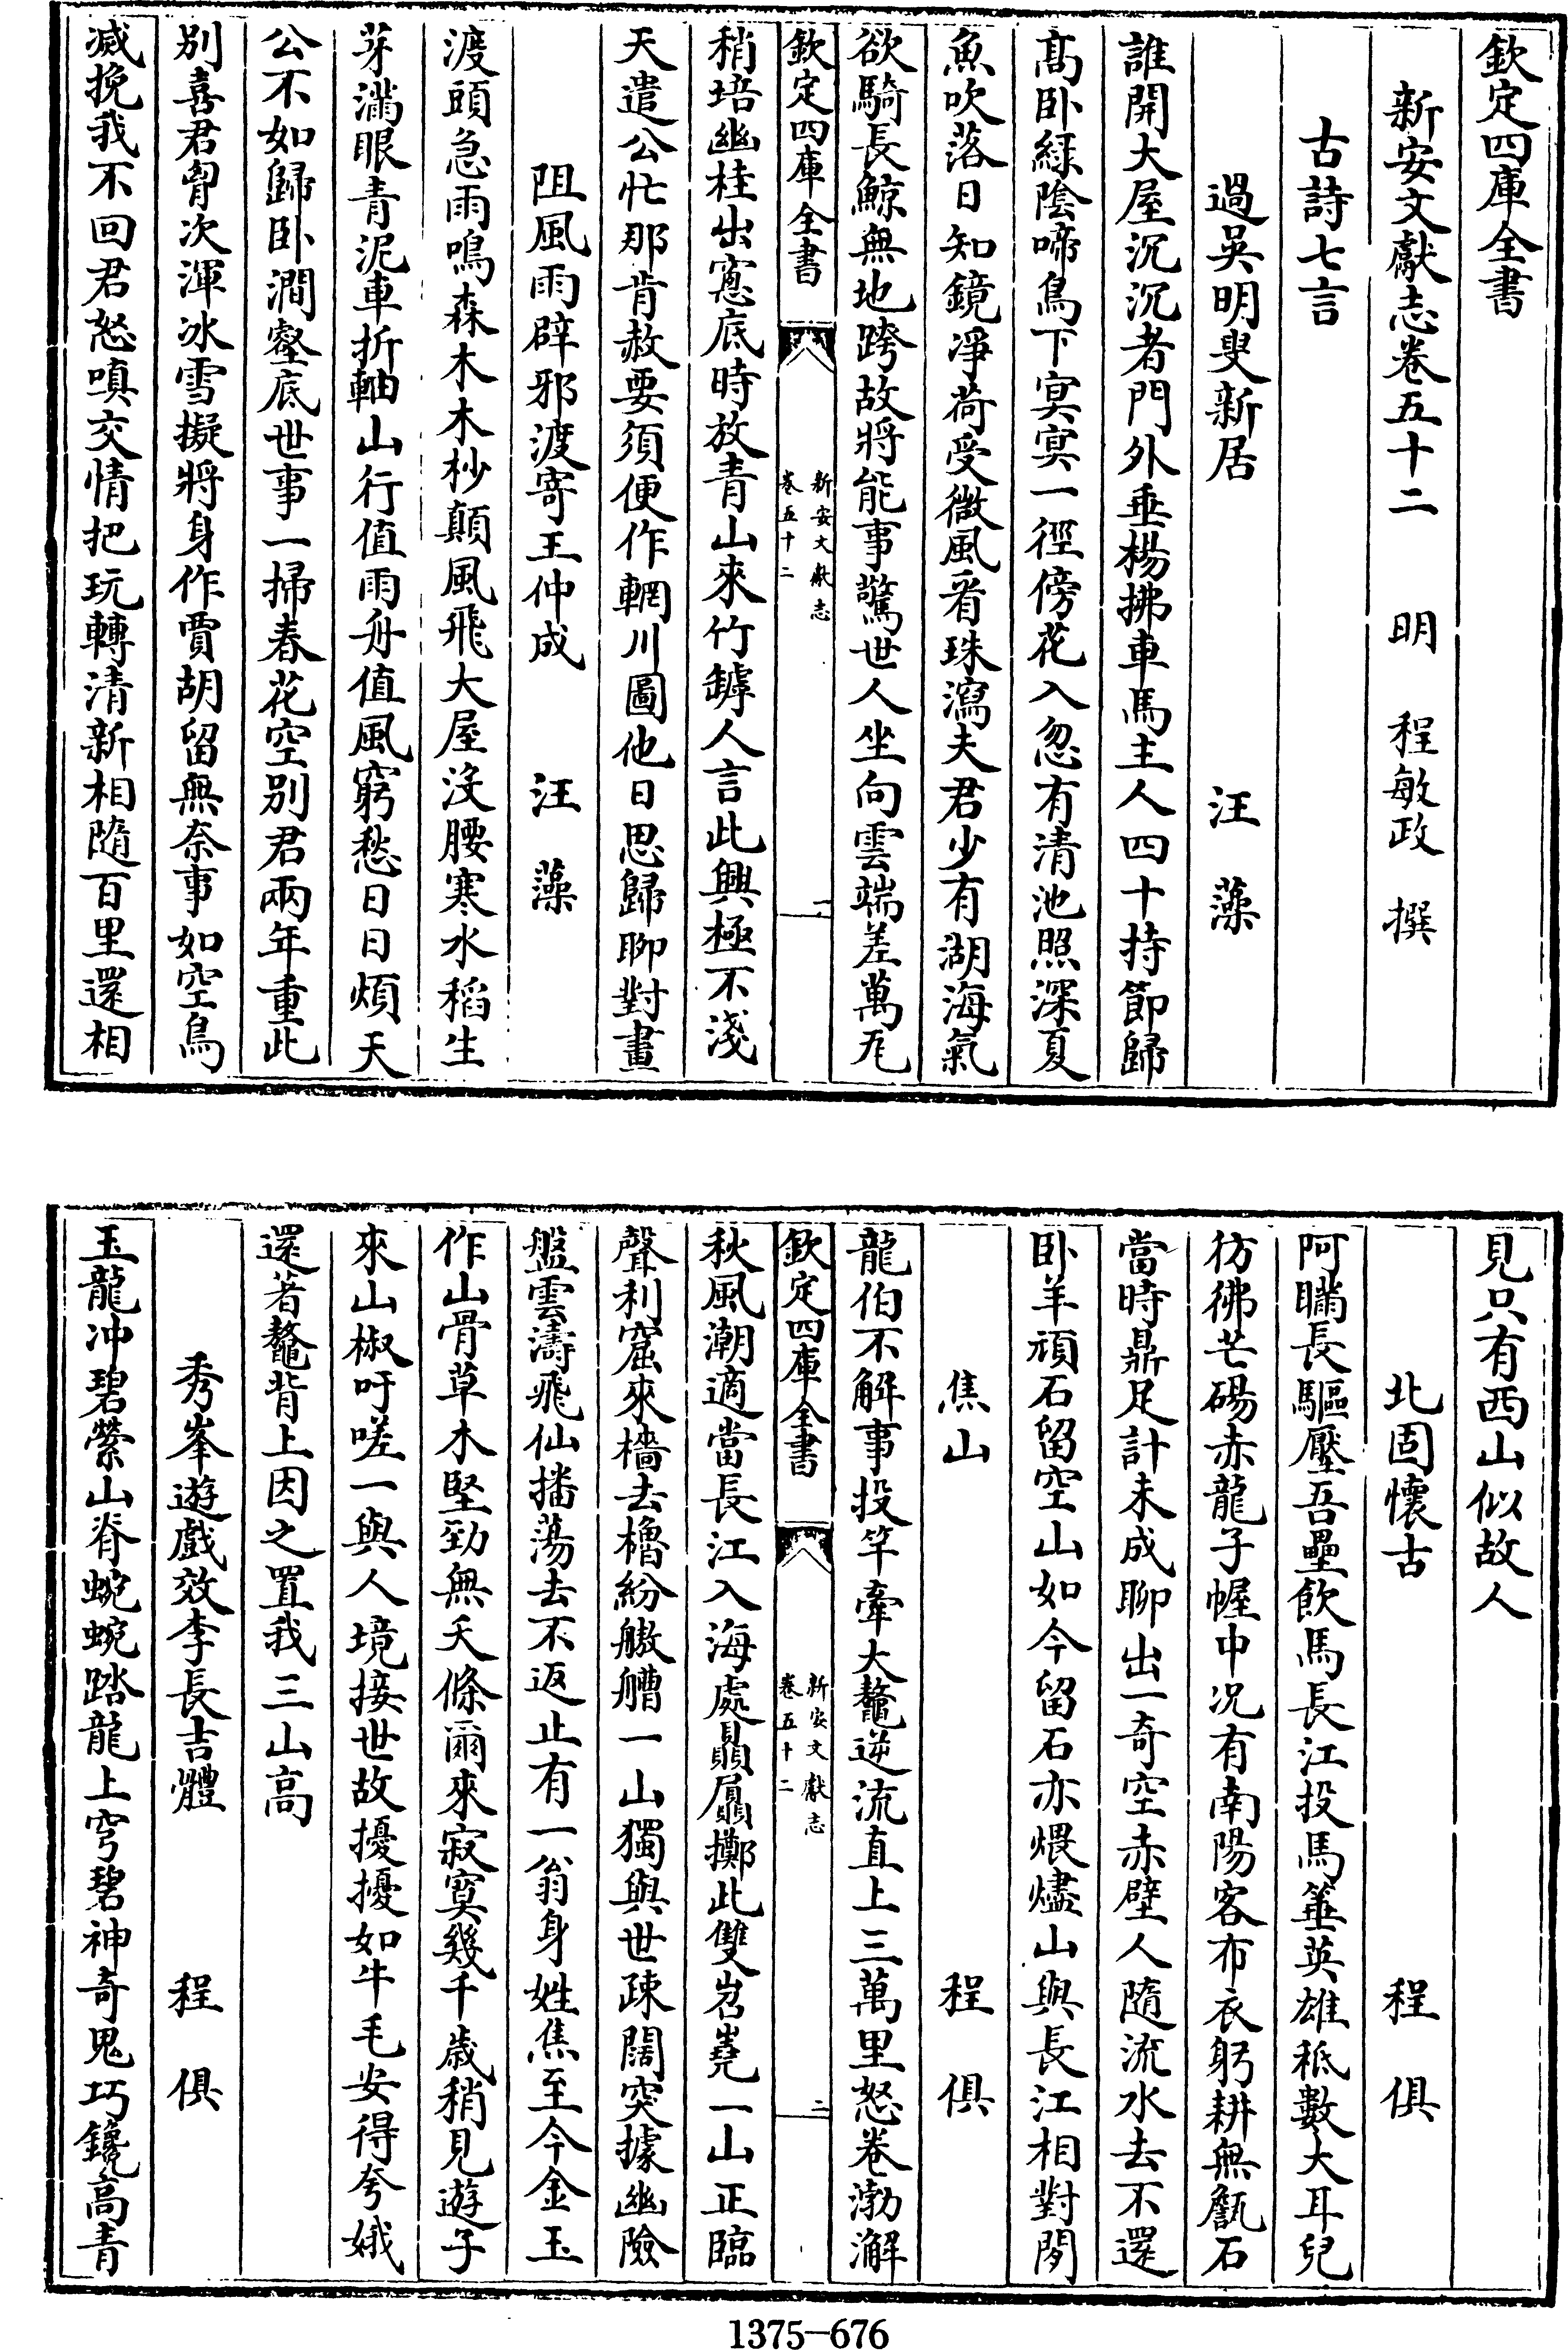 欽定四庫全書
新安文獻志卷五十二　明　程敏政　撰
古詩七言
過吳明叟新居　汪　藻
誰開大屋沉沉者門外垂楊拂車馬主人四十持節歸
髙卧緑隂啼鳥下㝠㝠一徑傍花入忽有清池照深夏
魚吹落日知鏡淨荷受微風看珠瀉夫君少有湖海氣
欲騎長鯨無地跨故將能事驚世人坐向雲端差萬瓦
欽定四庫全書
新安文獻志
卷五十二
一
稍培幽桂出窻底時放青山來竹罅人言此興極不淺
天遣公忙那肯赦要須便作輞川圖他日思歸聊對畫
阻風雨辟邪渡寄王仲成　汪　藻
渡頭急雨鳴森木木杪顛風飛大屋没腰寒水稻生
芽滿眼青泥車折軸山行值雨舟值風窮愁日日煩天
公不如歸卧澗壑底世事一掃春花空别君兩年重此
别喜君胷次渾冰雪擬將身作賈胡留無奈事如空鳥
滅挽我不回君怒嗔交情把玩轉清新相隨百里還相
見只有西山似故人
北固懷古　程　俱
阿瞞長驅壓吾壘飲馬長江投馬箠英雄秪數大耳兒
彷彿芒碭赤龍子幄中况有南陽客布衣躬耕無甔石
當時鼎足計未成聊出一奇空赤壁人隨流水去不還
卧羊頑石留空山如今留石亦煨燼山與長江相對閒
焦山　程　俱
龍伯不解事投竿牽大鼇逆流直上三萬里怒卷渤澥
欽定四庫全書
新安文獻志
卷五十二
二
秋風潮適當長江入海處贔屭擲此雙岧嶤一山正臨
聲利窟來檣去櫓紛艘艚一山獨與世疎闊突據幽險
盤雲濤飛仙播蕩去不返止有一翁身姓焦至今金玉
作山骨草木堅勁無夭條爾來寂寞幾千歳稍見遊子
來山椒吁嗟一與人境接世故擾擾如牛毛安得夸娥
還著鼇背上因之置我三山髙
秀峯遊戲效李長吉體　程　俱
玉龍冲碧縈山脊蜿蜿踏龍上穹碧神奇鬼巧鑱高青
1375-676